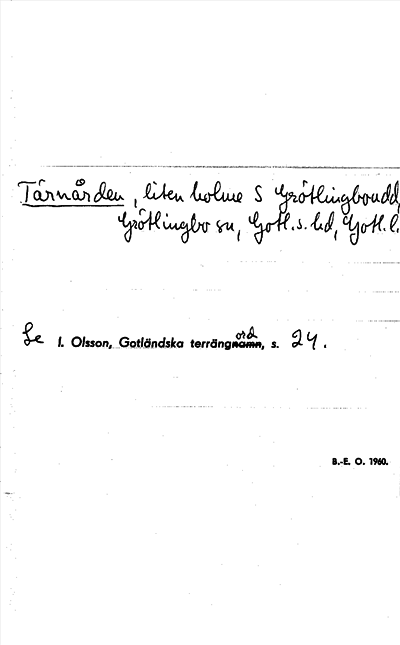 Tärnården, liten holme S Grötlingboudd,
Grötlingbo sn, Gotl. s. hd, Gotl. l.
Se I. Olsson, Gotländska terrängnamn ord, s. 24.
B.-E. O. 1960.